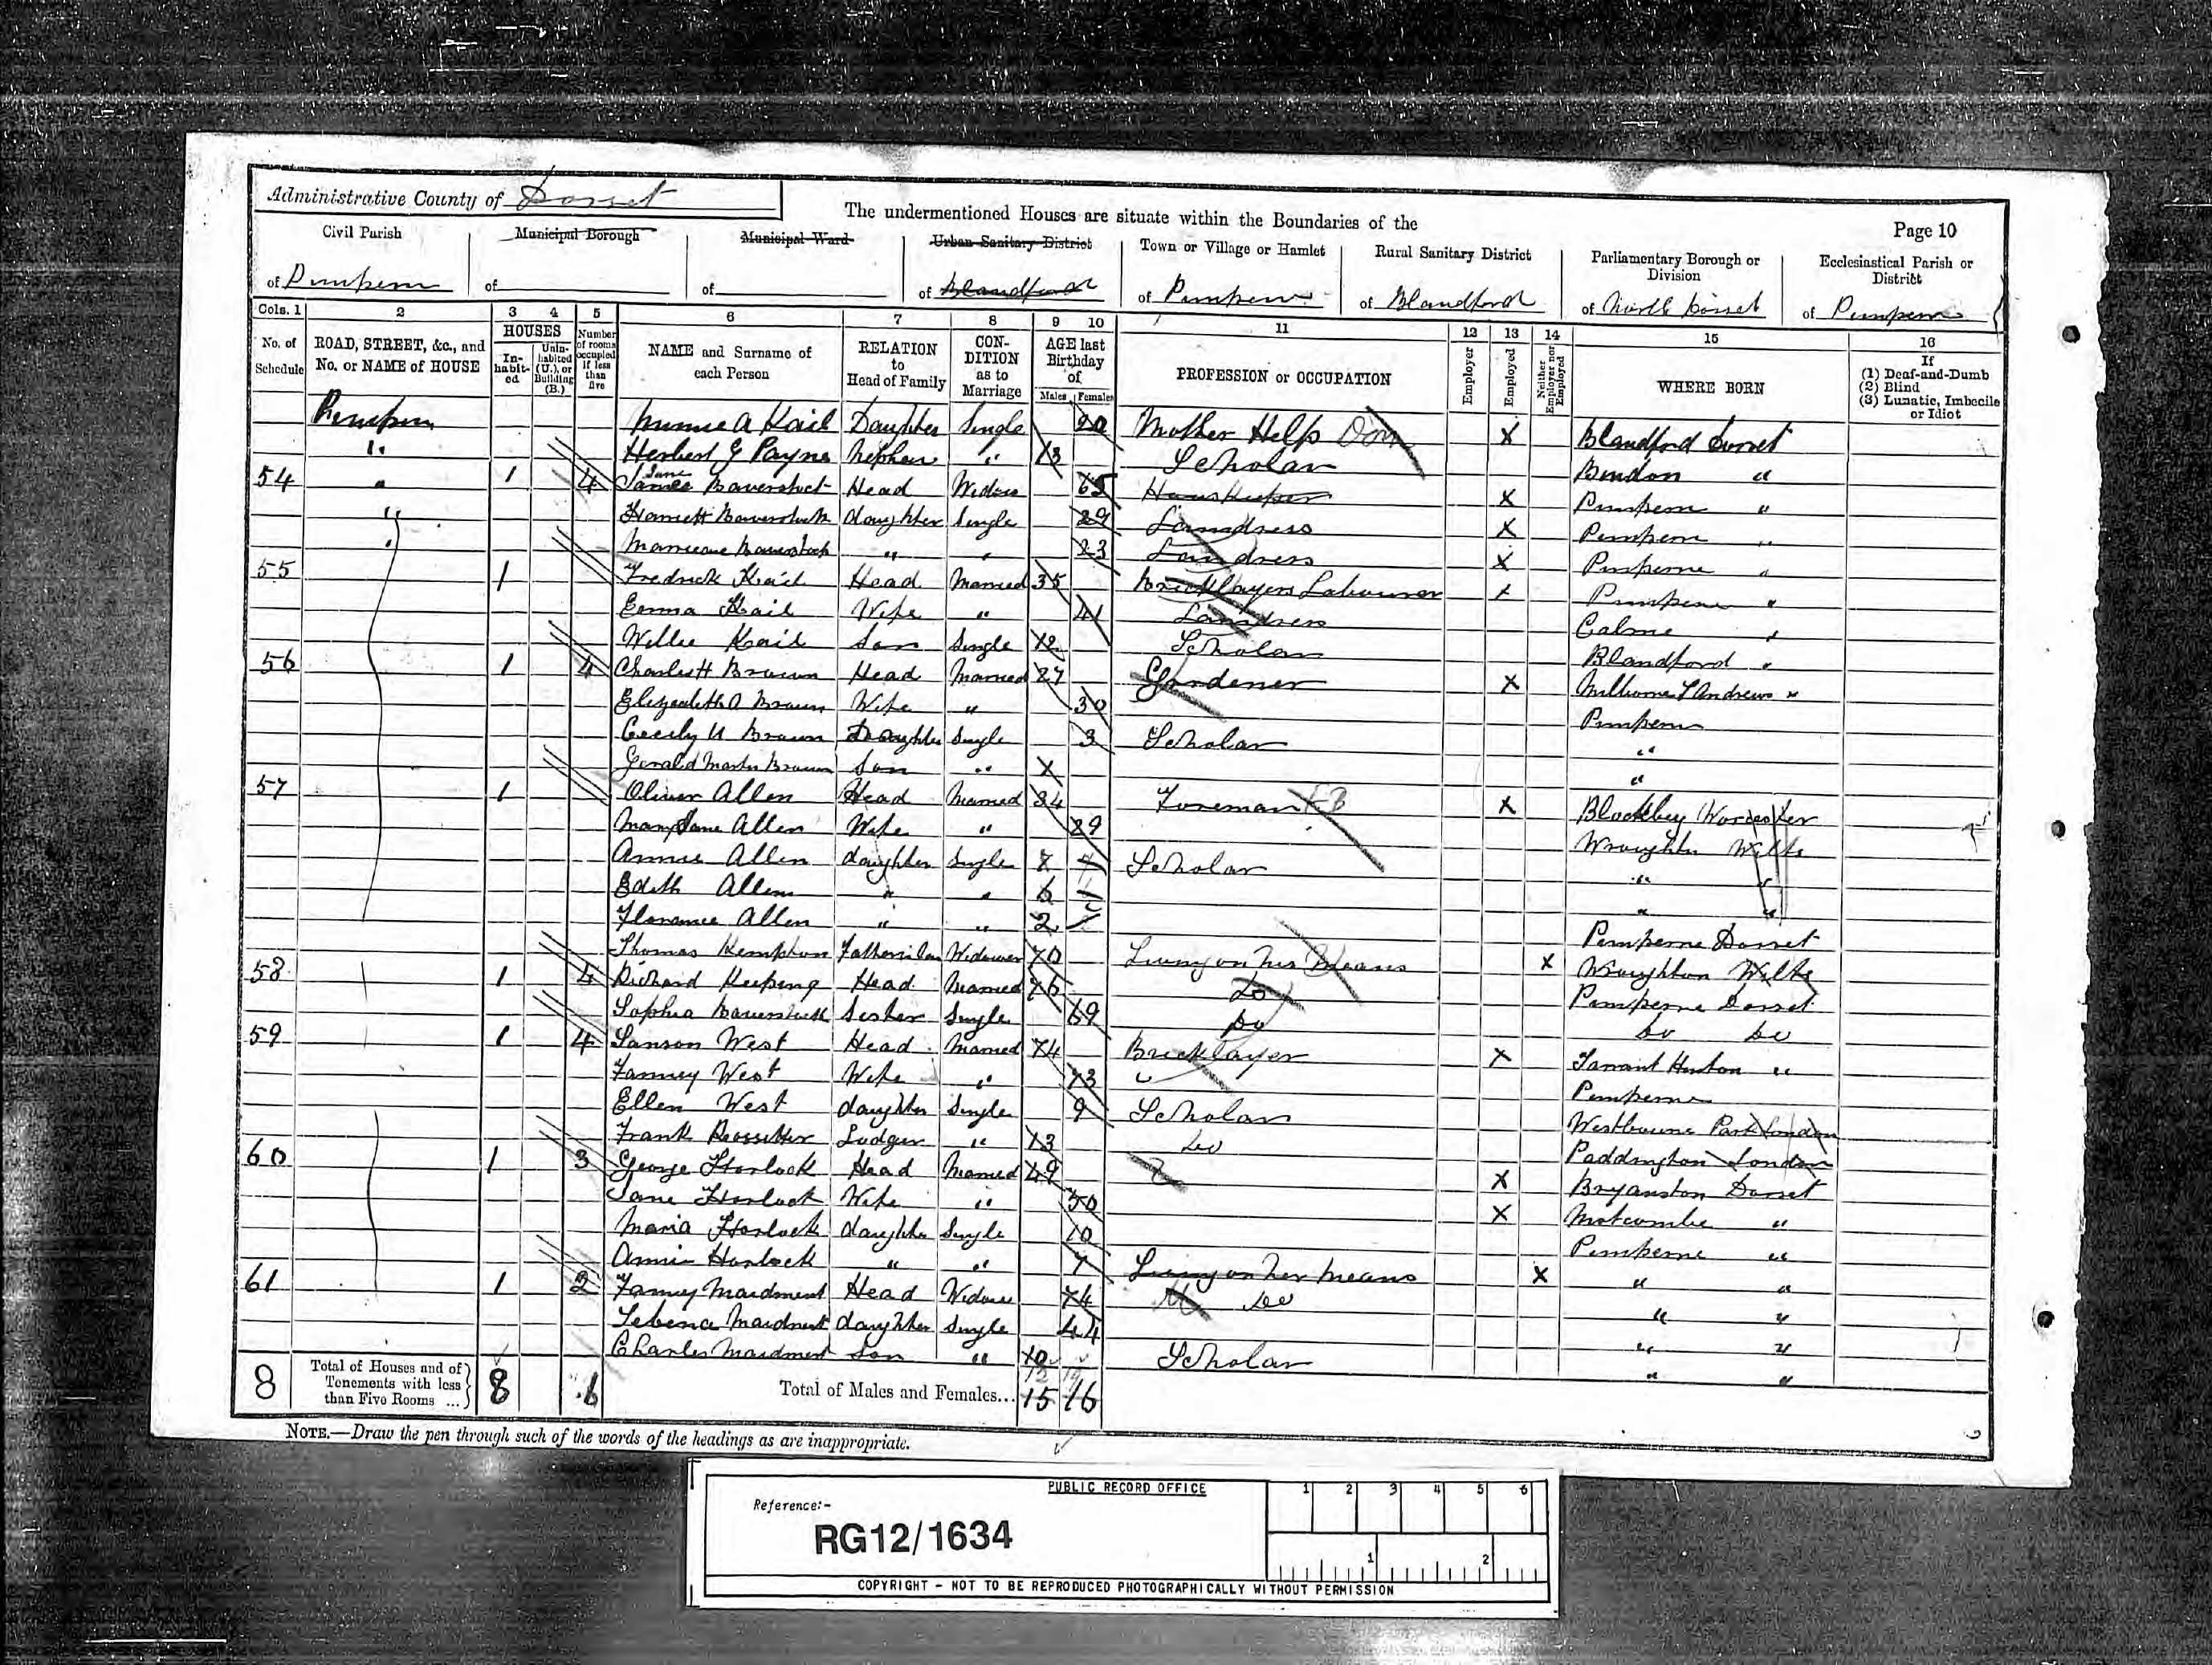 Administrative County of Dorset
The undermentioned Houses are situate within the Boundaries of the
Page 10
Civil Parish
Municipal Borough
Municipal Ward
Urban Sanitary District
Town or Village or Hamlet
Rural Sanitary District
Parliamentary Borough or Division
Ecclesiastical Parish or District
of Pimperne of of of Blandford of Pimperne of Blandford of North Dorset of Pimperne
Cols. 1 2 3 4 5 6 7 8 9 10 11 12 13 14 15 16
No. of Schedule
ROAD, STREET, &c., and No. or NAME of HOUSE
HOUSES
In-habit-ed
Unin-habited (U.), or Building (B.)
Number of rooms occupied if less than five
NAME and Surname of each Person
RELATION to Head of Family
CON-DITION as to Marriage
AGE last Birthday of
Males Females
PROFESSION or OCCUPATION
Employer
Employed
Neither Employer nor Employed
WHERE BORN
If
(1) Deaf-and-Dumb
(2) Blind
(3) Lunatic, Imbecile or Idiot
Pimpern Minnie A Kail Daughter Single 20 Mother Help Dom X Blandford Dorset
" Herbert G Payne Nephew " 13 Scholar "
54 " 1 4 Jane Baverstock Head Widow 65 Housekeeper X Pimpern "
" Baverstock daughter Single 29 Laundress X Pimpern "
" Baverstock " " 23 Laundress X Pimperne "
55 1 Fredrick Kail Head Married 35 Bricklayers Labourer X Pimperne "
Emma Kail Wife " 41 Laundress Calne "
Willie Kail Son Single 12 Scholar Blandford "
56 1 4 Charles H Brown Head Married 27 Gardener X Milborne St Andrews "
Elizabeth A Brown Wife " 30 Pimpern
Cecily Brown Daughter Single 3 Scholar "
Gerald Brown Son " "
57 1 Oliver Allen Head Married 34 Foreman X Blockley Worcester
Mary Jane Allen Wife " 29 Wroughton Wilts
Annie Allen daughter Single 7 Scholar " "
Edith Allen " " 6 " "
Florence Allen " " 2 Pimperne Dorset
Thomas Kempton Father in law Widower 70 Living on his Means X Wroughton Wilts
58 1 4 Richard Keeping Head Married 76 Do Pimperne Dorset
Sophia Baverstock Sister Single 69 Do Do Do
59 1 4 Sanson West Head Married 74 Bricklayer X Tarrant Hinton "
Fanney West Wife " 73 Pimperne
Ellen West daughter Single 9 Scholar Westbourne Park London
Frank Rossetter Lodger " 13 Do Paddington London
60 1 3 George Horlock Head Married 49 X Bryanston Dorset
Jane Horlock Wife " 50 X Motcombe "
Maria Horlock daughter Single 10 Pimperne "
Annie Horlock " " 7 Living on her means X " "
61 1 2 Fanny Maidment Head Widow 74 Do " "
Maidment daughter Single 44 " "
Charles Maidment Son " 10 Scholar " "
8 Total of Houses and of Tenements with less than Five Rooms ... 8 6 Total of Males and Females... 15 16
NOTE.—Draw the pen through such of the words of the headings as are inappropriate.
PUBLIC RECORD OFFICE
Reference:-
RG12/1634
1 2 3 4 5 6
1 2
COPYRIGHT - NOT TO BE REPRODUCED PHOTOGRAPHICALLY WITHOUT PERMISSION